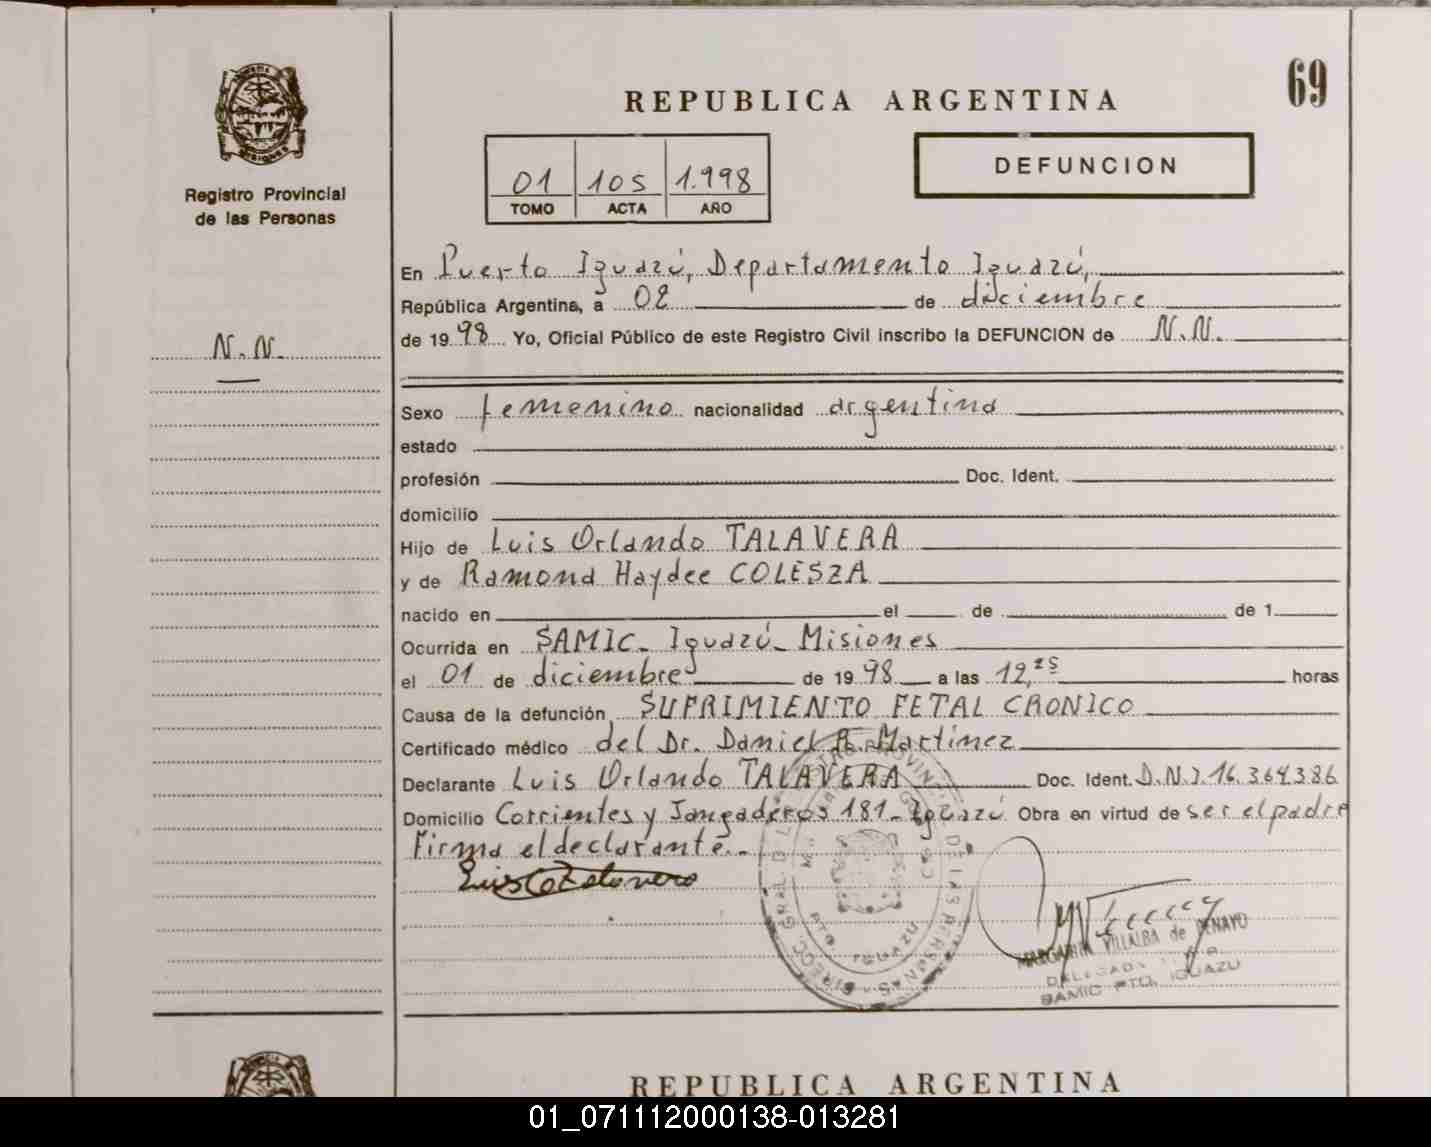 69
REPUBLICA ARGENTINA
Registro Provincial
de las Personas
01 105 1.998
TOMO ACTA AÑO
DEFUNCION
N.N.
En Puerto Iguazú, Departamento Iguazú,
República Argentina, a 02 de diciembre
de 1998 Yo, Oficial Público de este Registro Civil inscribo la DEFUNCION de N.N.
Sexo femenino nacionalidad argentina
estado
profesión Doc. Ident.
domicilio
Hijo de Luis Orlando TALAVERA
y de Ramona Haydee COLESZA
nacido en el de de 1
Ocurrida en SAMIC- Iguazú- Misiones
el 01 de diciembre de 1998 a las 12,25 horas
Causa de la defunción SUFRIMIENTO FETAL CRONICO
Certificado médico del Dr. Daniel R. Martínez
Declarante Luis Orlando TALAVERA Doc. Ident. D.N.I. 16.364.386
Domicilio Corrientes y Jangaderos 181- Iguazú Obra en virtud de ser el padre
Firma el declarante.-
MARGARITA VILLALBA de PENAYO
SAMIC PTO. IGUAZU
REPUBLICA ARGENTINA
01_071112000138-013281